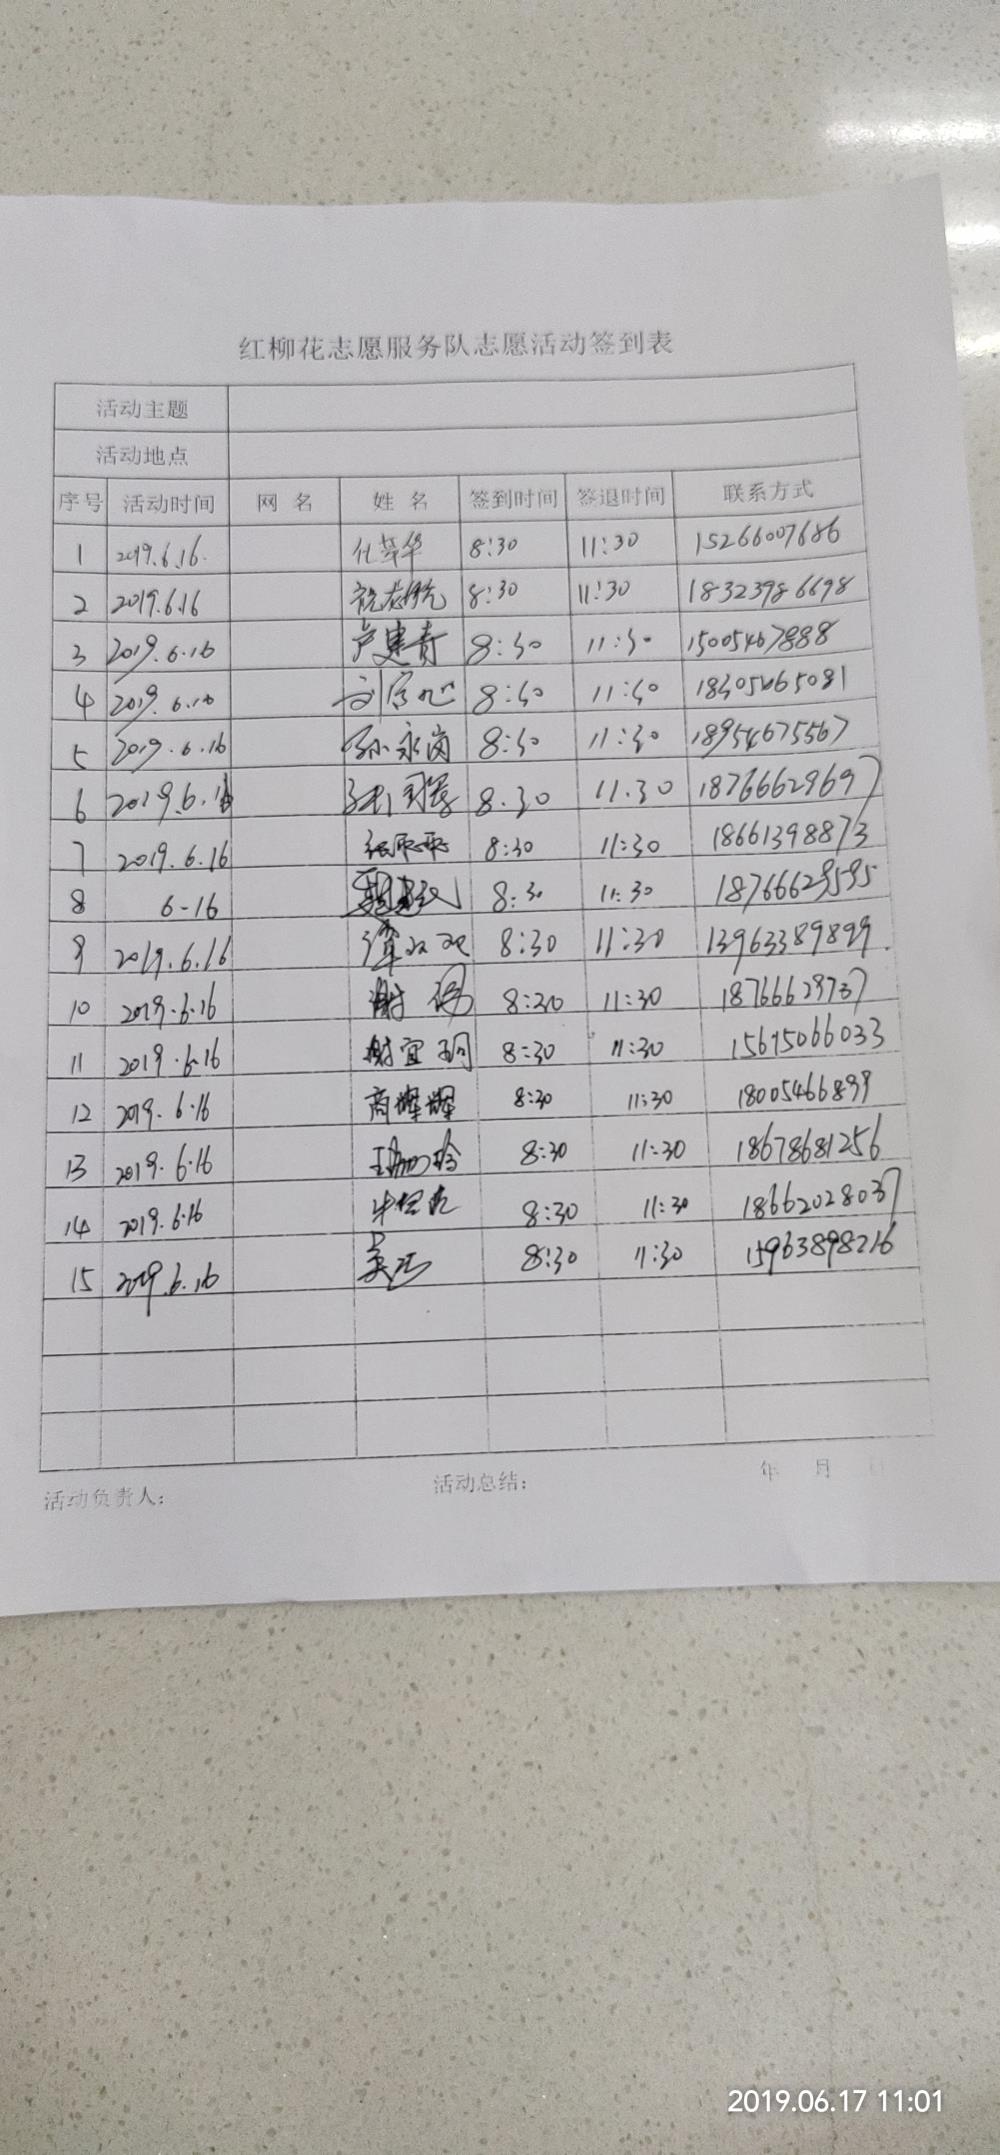 红柳花志愿服务队志愿活动签到表
活动主题
活动地点
序号 活动时间 网 名 姓 名 签到时间 签退时间 联系方式
1 2019.6.16. 8:30 11:30 15266007686
2 2019.6.16 8:30 11:30 18323986698
3 2019.6.16 卢建青 8:30 11:30 15005467888
4 2019.6.16 8:30 11:30 18305465081
5 2019.6.16 孙永岗 8:30 11:30 18954675567
6 2019.6.16 8.30 11.30 18766629697
7 2019.6.16 8:30 11:30 18661398873
8 6-16 8:30 11:30 18766629595
9 2019.6.16 8:30 11:30 13963389899
10 2019.6.16 8:30 11:30 18766629737
11 2019.6-16 谢宜珂 8:30 11:30 15615066033
12 2019.6.16 商辉辉 8:30 11:30 18005466899
13 2019.6.16 8:30 11:30 18678681256
14 2019.6.16 8:30 11:30 18662028037
15 2019.6.16 8:30 11:30 15963898216
活动负责人: 活动总结: 年 月 日
2019.06.17 11:01